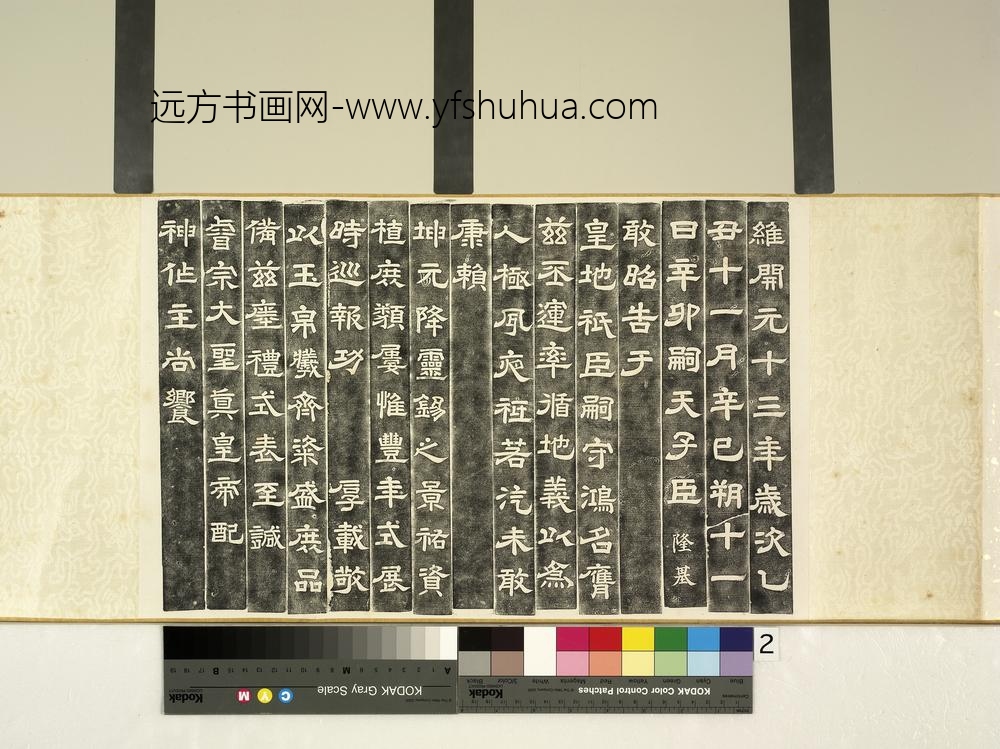 远方书画网-www.yfshuhua.com
維開元十三年歲次乙
丑十一月辛巳朔十一
日辛卯嗣天子臣隆基
敢昭告于
皇地祇臣嗣守鴻名膺
茲丕運率循地義以為
人極夙夜祗若汔未敢
康賴
坤元降靈錫之景祐資
植庶類屢惟豐年式展
時巡報功 厚載敬
以玉帛犧齊粢盛庶品
備茲瘞禮式表至誠
睿宗大聖真皇帝配
神作主尚饗
2
KODAK Gray Scale
C Y M
Kodak
KODAK Color Control Patches
Kodak
Blue Cyan Green Yellow Red Magenta White 3/Color Black